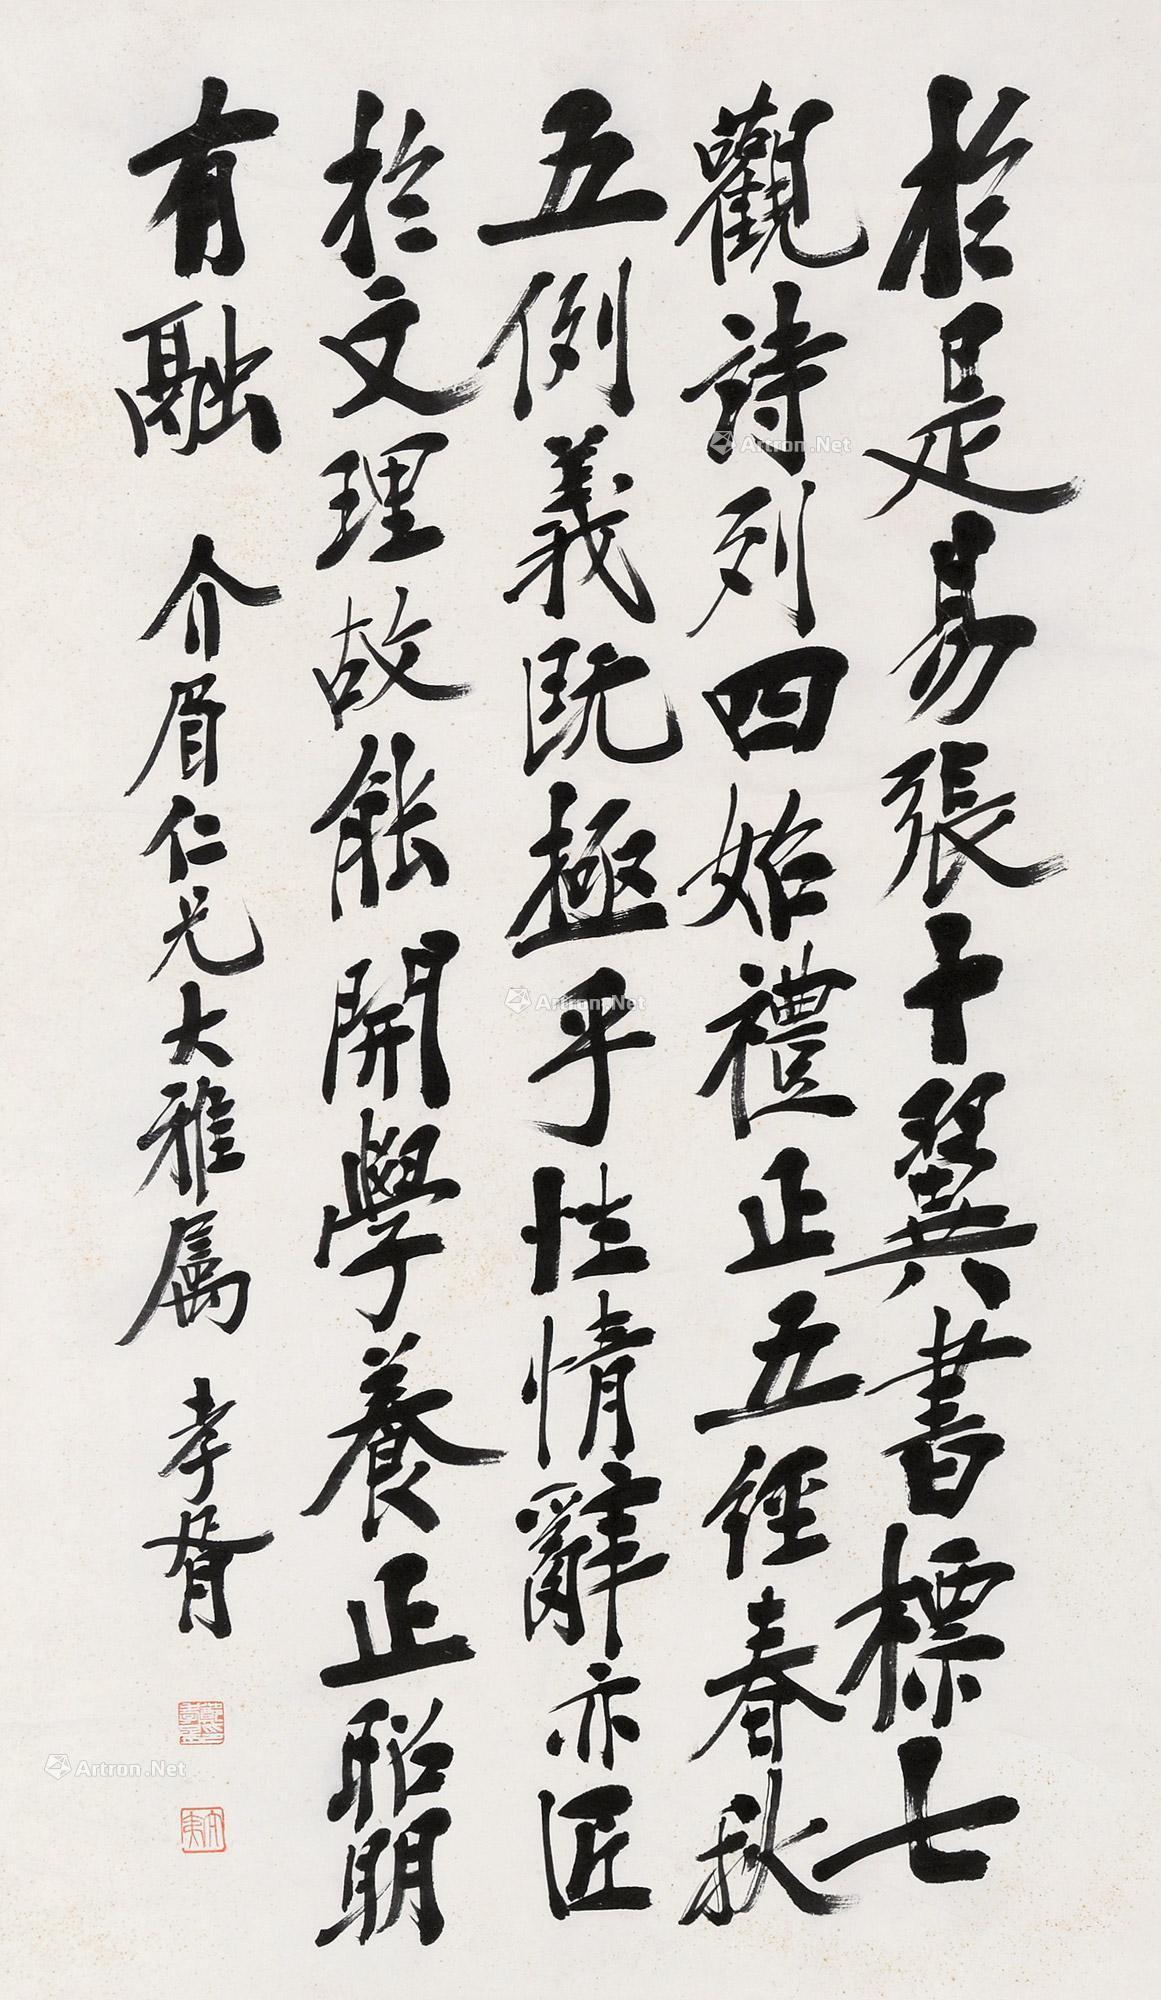 於是易張十翼書標七
觀詩列四始禮正五經春秋
五例義既極乎性情辭亦匠
於文理故能開學養正昭明
有融
介眉仁兄大雅属 孝胥
Artron.Net
Artron.Net
Artron.Net